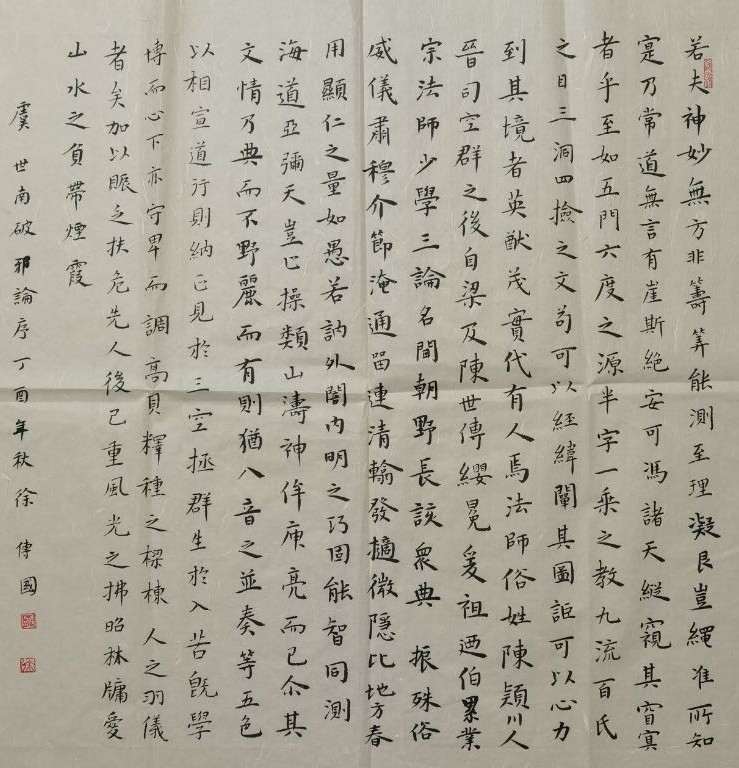 若夫神妙無方非籌算能測至理凝邈豈繩准所知
寔乃常道無言有崖斯絕安可馮諸天縱窺其窅冥
者乎至如五門六度之源半字一乘之教九流百氏
之目三洞四撿之文苟可以經緯闡其圖詎可以心力
到其境者英猷茂實代有人焉法師俗姓陳潁川人
晉司空群之後自梁及陳世傳纓冕爰祖迺伯累業
宗法師少學三論名聞朝野長該衆典振殊俗
威儀肅穆介節淹通留連清翰發擿微隱比地方春
用顯仁之量如愚若訥外闇內明之巧固能智同測
海道亞彌天豈止操類山濤神侔庾亮而已尒其
文情乃典而不野麗而有則猶八音之並奏等五色
以相宣道行則納正見於三空拯群生於入苦旣學
博而心下亦守卑而調高貝釋種之樑棟人之羽儀
者矣加以賑乏扶危先人後己重風光之拂昭林牖愛
山水之負帶煙霞
虞世南破邪論序丁酉年秋徐傳國